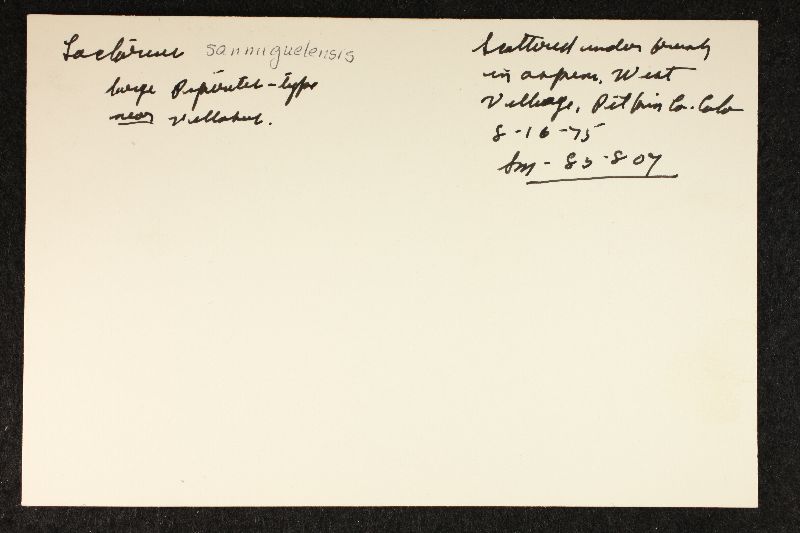 Lactarius sanmiguelensis
large Piperites-type
near villosus.
Scattered under brush
in aspens, West
Village, Pitkin Co. Colo
8-16-75
Sm - 85807